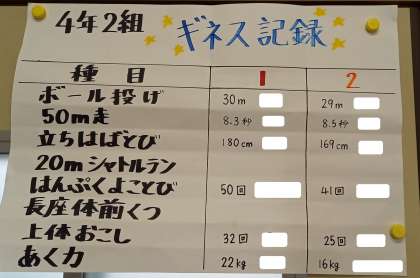 4年2組 ギネス記録
種目 1 2
ボール投げ 30m 29m
50m走 8.3秒 8.5秒
立ちはばとび 180cm 169cm
20mシャトルラン
はんぷくよことび 50回 41回
長座体前くつ
上体おこし 32回 25回
あく力 22kg 16kg